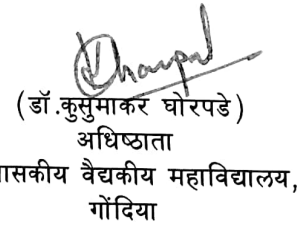 (डॉ.कुसुमाकर घोरपडे)
अधिष्ठाता
वैद्यकीय महाविद्यालय,
गोंदिया